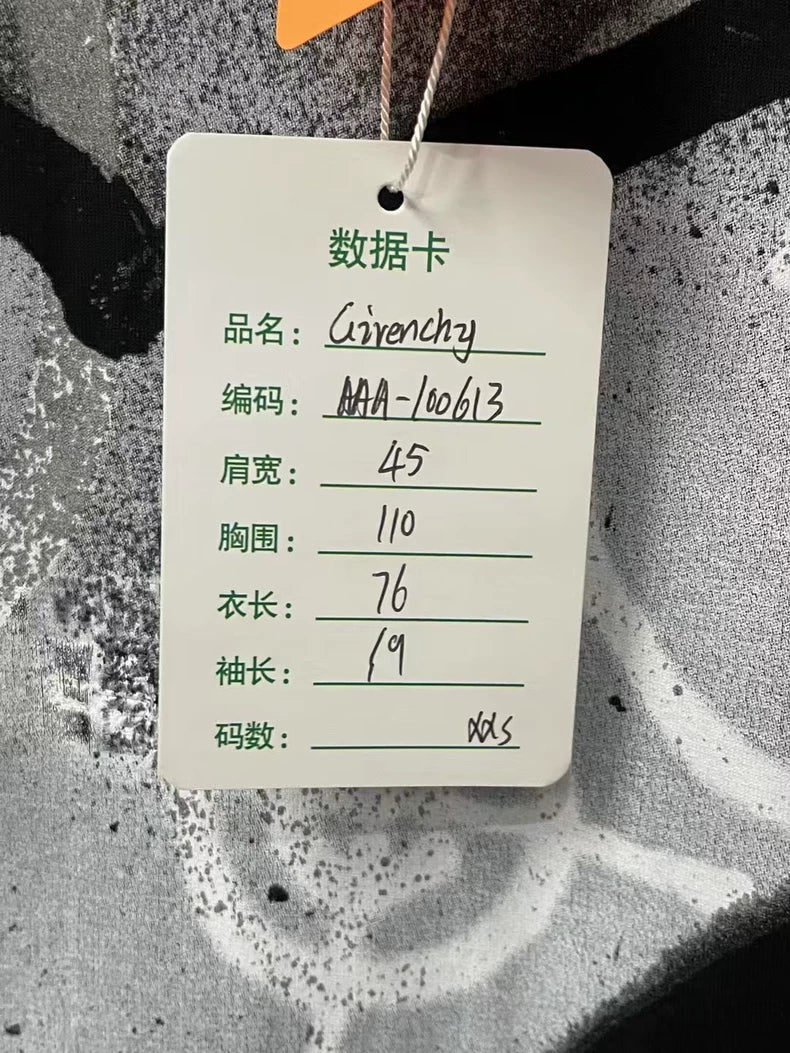 数据卡
品名：Givenchy
编码：AAA-100613
肩宽：45
胸围：110
衣长：76
袖长：19
码数：XXS